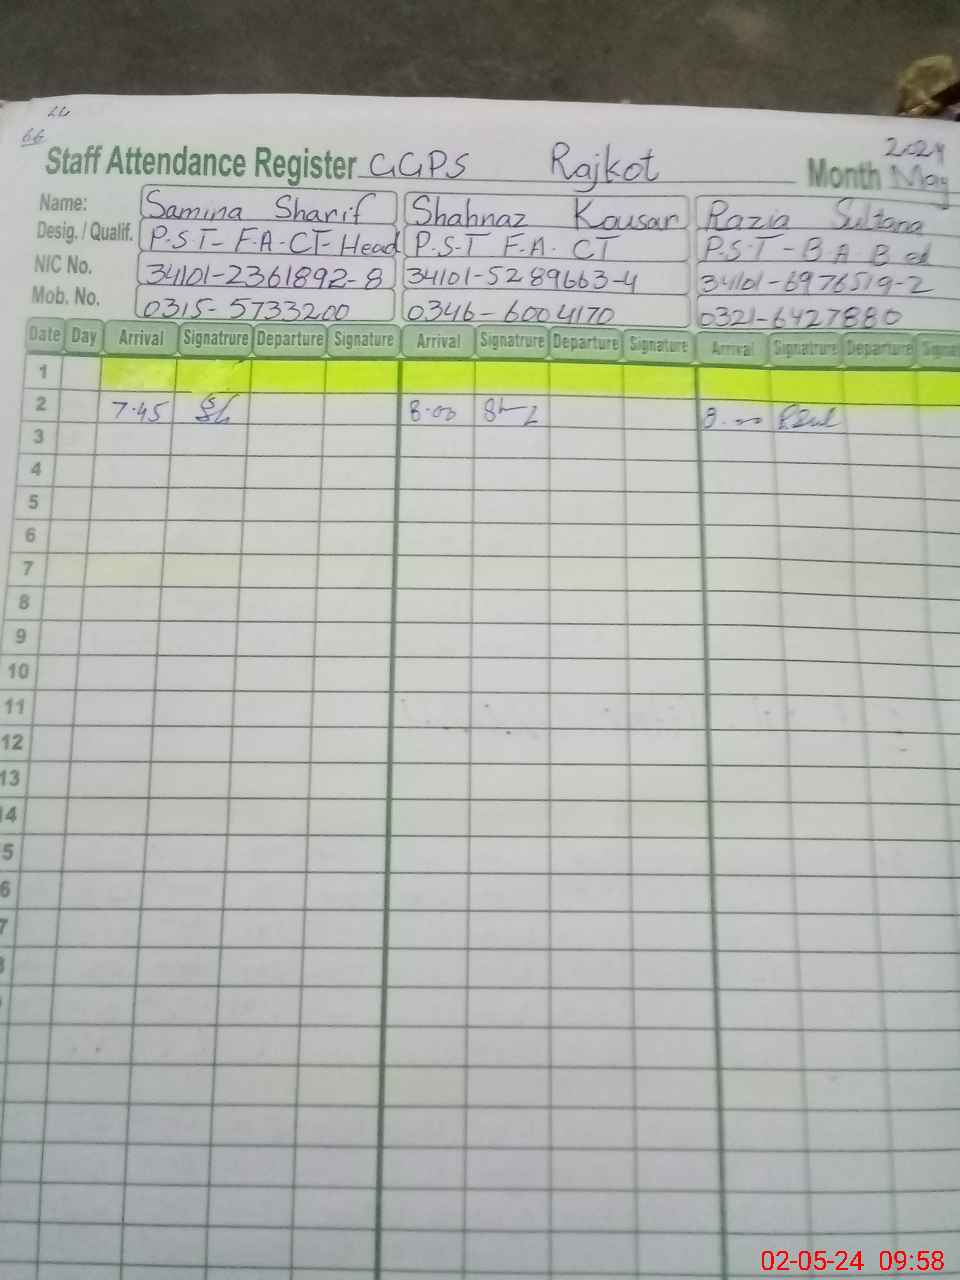 66
66
2024
Staff Attendance Register GGPS Rajkot Month May
Name: Samina Sharif Shahnaz Kousar Razia Sultana
Desig. / Qualif. P.S.T- F.A.CT-Head P.S.T F.A. CT P.S.T - B A B ed
NIC No. 34101-2361892-8 34101-5289663-4 34101-6976519-2
Mob. No. 0315-5733200 0346-6004170 0321-6427880
Date Day Arrival Signatrure Departure Signature Arrival Signatrure Departure Signature Arrival Signatrure Departure Signat
1
2 7.45 8.00 8.00
3
4
5
6
7
8
9
10
11
12
13
14
5
6
7
02-05-24 09:58